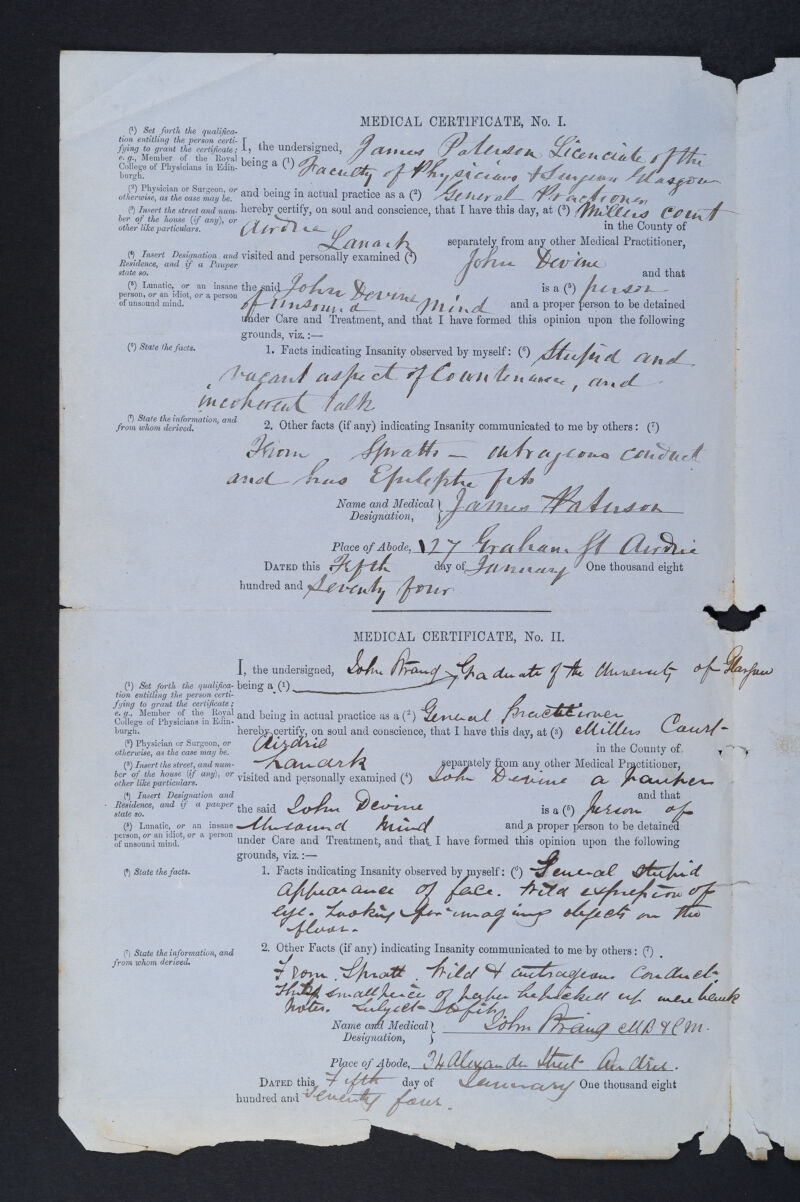 MEDICAL CERTIFICATE, No. I.
(1) Set forth the qualifica-
tion entitling the person certi-
fying to grant the certificate;
e. g., Member of the Royal
College of Physicians in Edin-
burgh.
I, the undersigned, James Paterson Licenciate of the
being a (1) Faculty of Physicians & Surgeon Glasgow
(2) Physician or Surgeon, or
otherwise, as the case may be.
and being in actual practice as a (2) General Practioner
(3) Insert the street and num-
ber of the house (if any), or
other like particulars.
hereby certify, on soul and conscience, that I have this day, at (3) Millers Court
Airdrie in the County of
Lanark separately from any other Medical Practitioner,
(4) Insert Designation and
Residence, and if a Pauper
state so.
visited and personally examined (4) John Devine
and that
(5) Lunatic, or an insane
person, or an idiot, or a person
of unsound mind.
the said John Devine is a (5) person
of unsound mind and a proper person to be detained
under Care and Treatment, and that I have formed this opinion upon the following
grounds, viz.:—
(6) State the facts.
1. Facts indicating Insanity observed by myself: (6) Stupid and
vacant aspect of Countenance, and
incoherent talk
(7) State the information, and
from whom derived.
2. Other facts (if any) indicating Insanity communicated to me by others: (7)
From Spratts — outrageous conduct
and has Epileptic fits
Name and Medical Designation, James Paterson
Place of Abode, 127 Graham St Airdrie
DATED this Fifth day of January One thousand eight
hundred and Seventy four
MEDICAL CERTIFICATE, No. II.
I, the undersigned, John Prang Graduate of the University of Glasgow
(1) Set forth the qualifica-
tion entitling the person certi-
fying to grant the certificate;
e. g., Member of the Royal
College of Physicians in Edin-
burgh.
being a (1)
(2) Physician or Surgeon, or
otherwise, as the case may be.
and being in actual practice as a (2) General Practitioner
(3) Insert the street, and num-
ber of the house (if any), or
other like particulars.
hereby certify, on soul and conscience, that I have this day, at (3) Millers Court
Airdrie in the County of
Lanark separately from any other Medical Practitioner,
(4) Insert Designation and
Residence, and if a pauper
state so.
visited and personally examined (4) John Devine a pauper
and that
(5) Lunatic, or an insane
person, or an idiot, or a person
of unsound mind.
the said John Devine is a (5) person of
Unsound Mind and a proper person to be detained
under Care and Treatment, and that I have formed this opinion upon the following
grounds, viz.:—
(6) State the facts.
1. Facts indicating Insanity observed by myself: (6) General Stupid
appearance of face. Wild expression of
eye. Looking for imaginary objects on the
floor.
(7) State the information, and
from whom derived.
2. Other Facts (if any) indicating Insanity communicated to me by others: (7)
From Spratt. Wild & outrageous Conduct
small pieces of paper he picked up were bank
notes. Subject to fits
Name and Medical Designation, John Prang MB & CM.
Place of Abode, 74 Alexander Street Airdrie.
DATED this Fifth day of January One thousand eight
hundred and Seventy four.